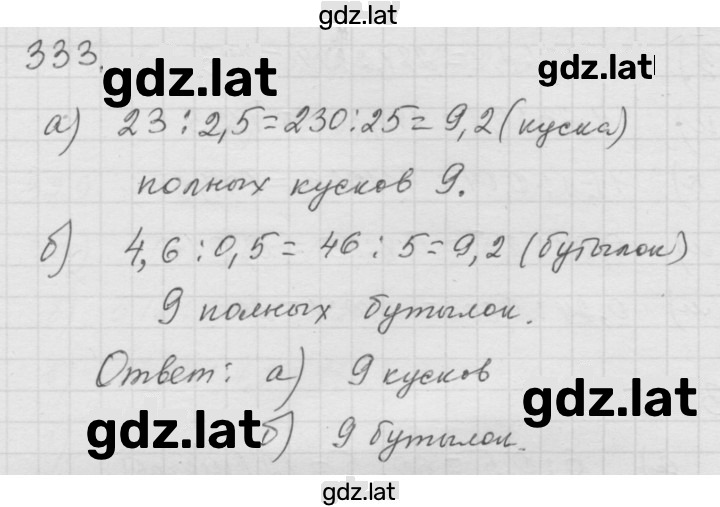 gdz.lat
333.
gdz.lat
gdz.lat
а) 23 : 2,5 = 230 : 25 = 9,2 (куска)
полных кусков 9.
б) 4,6 : 0,5 = 46 : 5 = 9,2 (бутылок)
9 полных бутылок.
Ответ: а) 9 кусков
gdz.lat
gdz.lat б) 9 бутылок.
gdz.lat